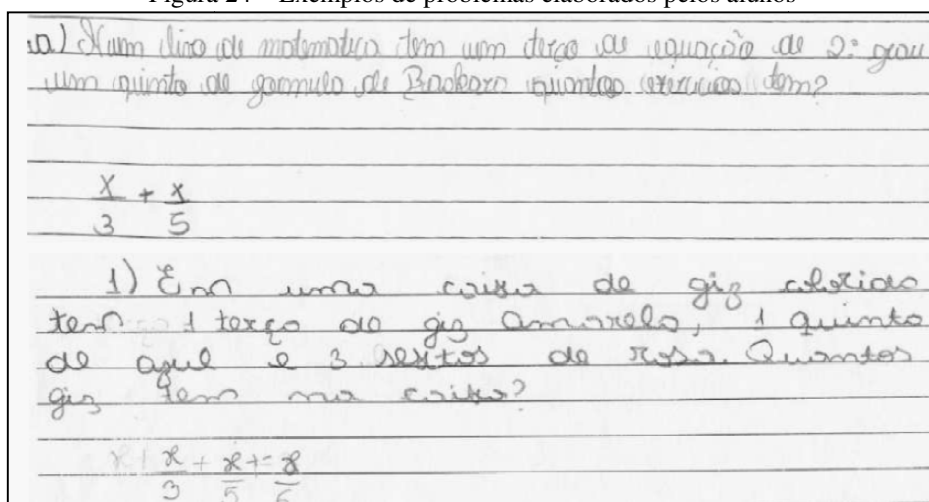 Figura 24 – Exemplos de problemas elaborados pelos alunos
a) Num livro de matematica tem um terço de equação de 2º grau
um quinto de formula de Baskara quantos exercicios tem?
x/3 + x/5
1) Em uma caixa de giz colorido
tem 1 terço de giz amarelo, 1 quinto
de azul e 3 sextos de rosa. Quantos
giz tem na caixa?
x/3 + x/5 + = x/6